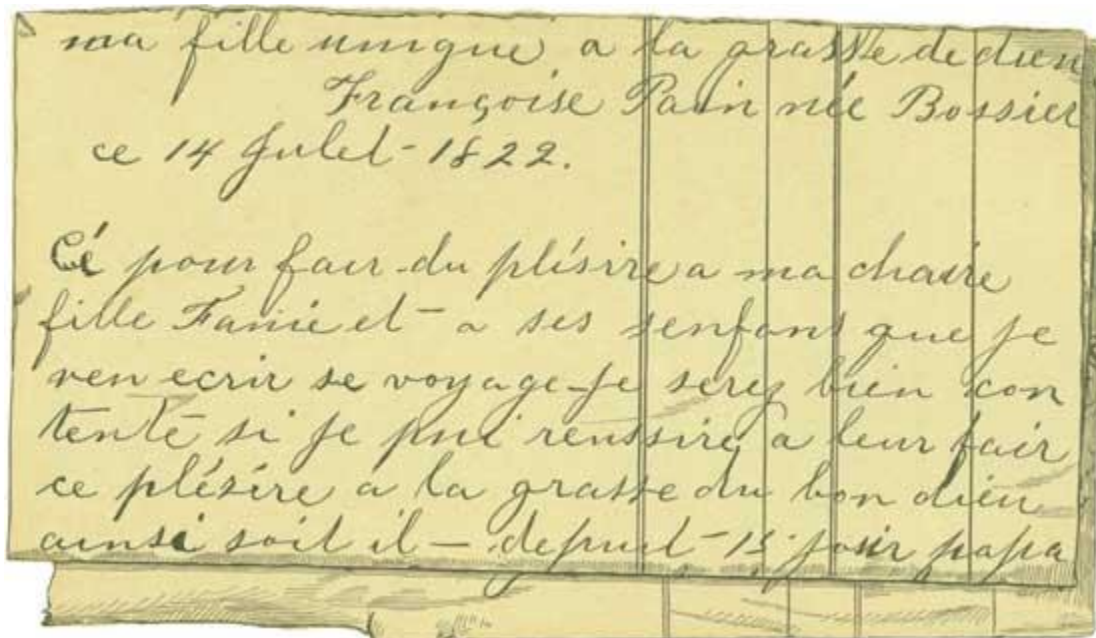 ma fille unique a la grasse de dieu
Françoise Pain née Bossier
ce 14 Julet - 1822.
Cé pour fair du plésire a ma chaire
fille Fanie et - a ses senfant que je
ven ecrir se voyage - je serey bien con
tente si je pui renssire a leur fair
ce plésire a la grasse du bon dieu
ainsi soit il - depuit - 15 jour papa